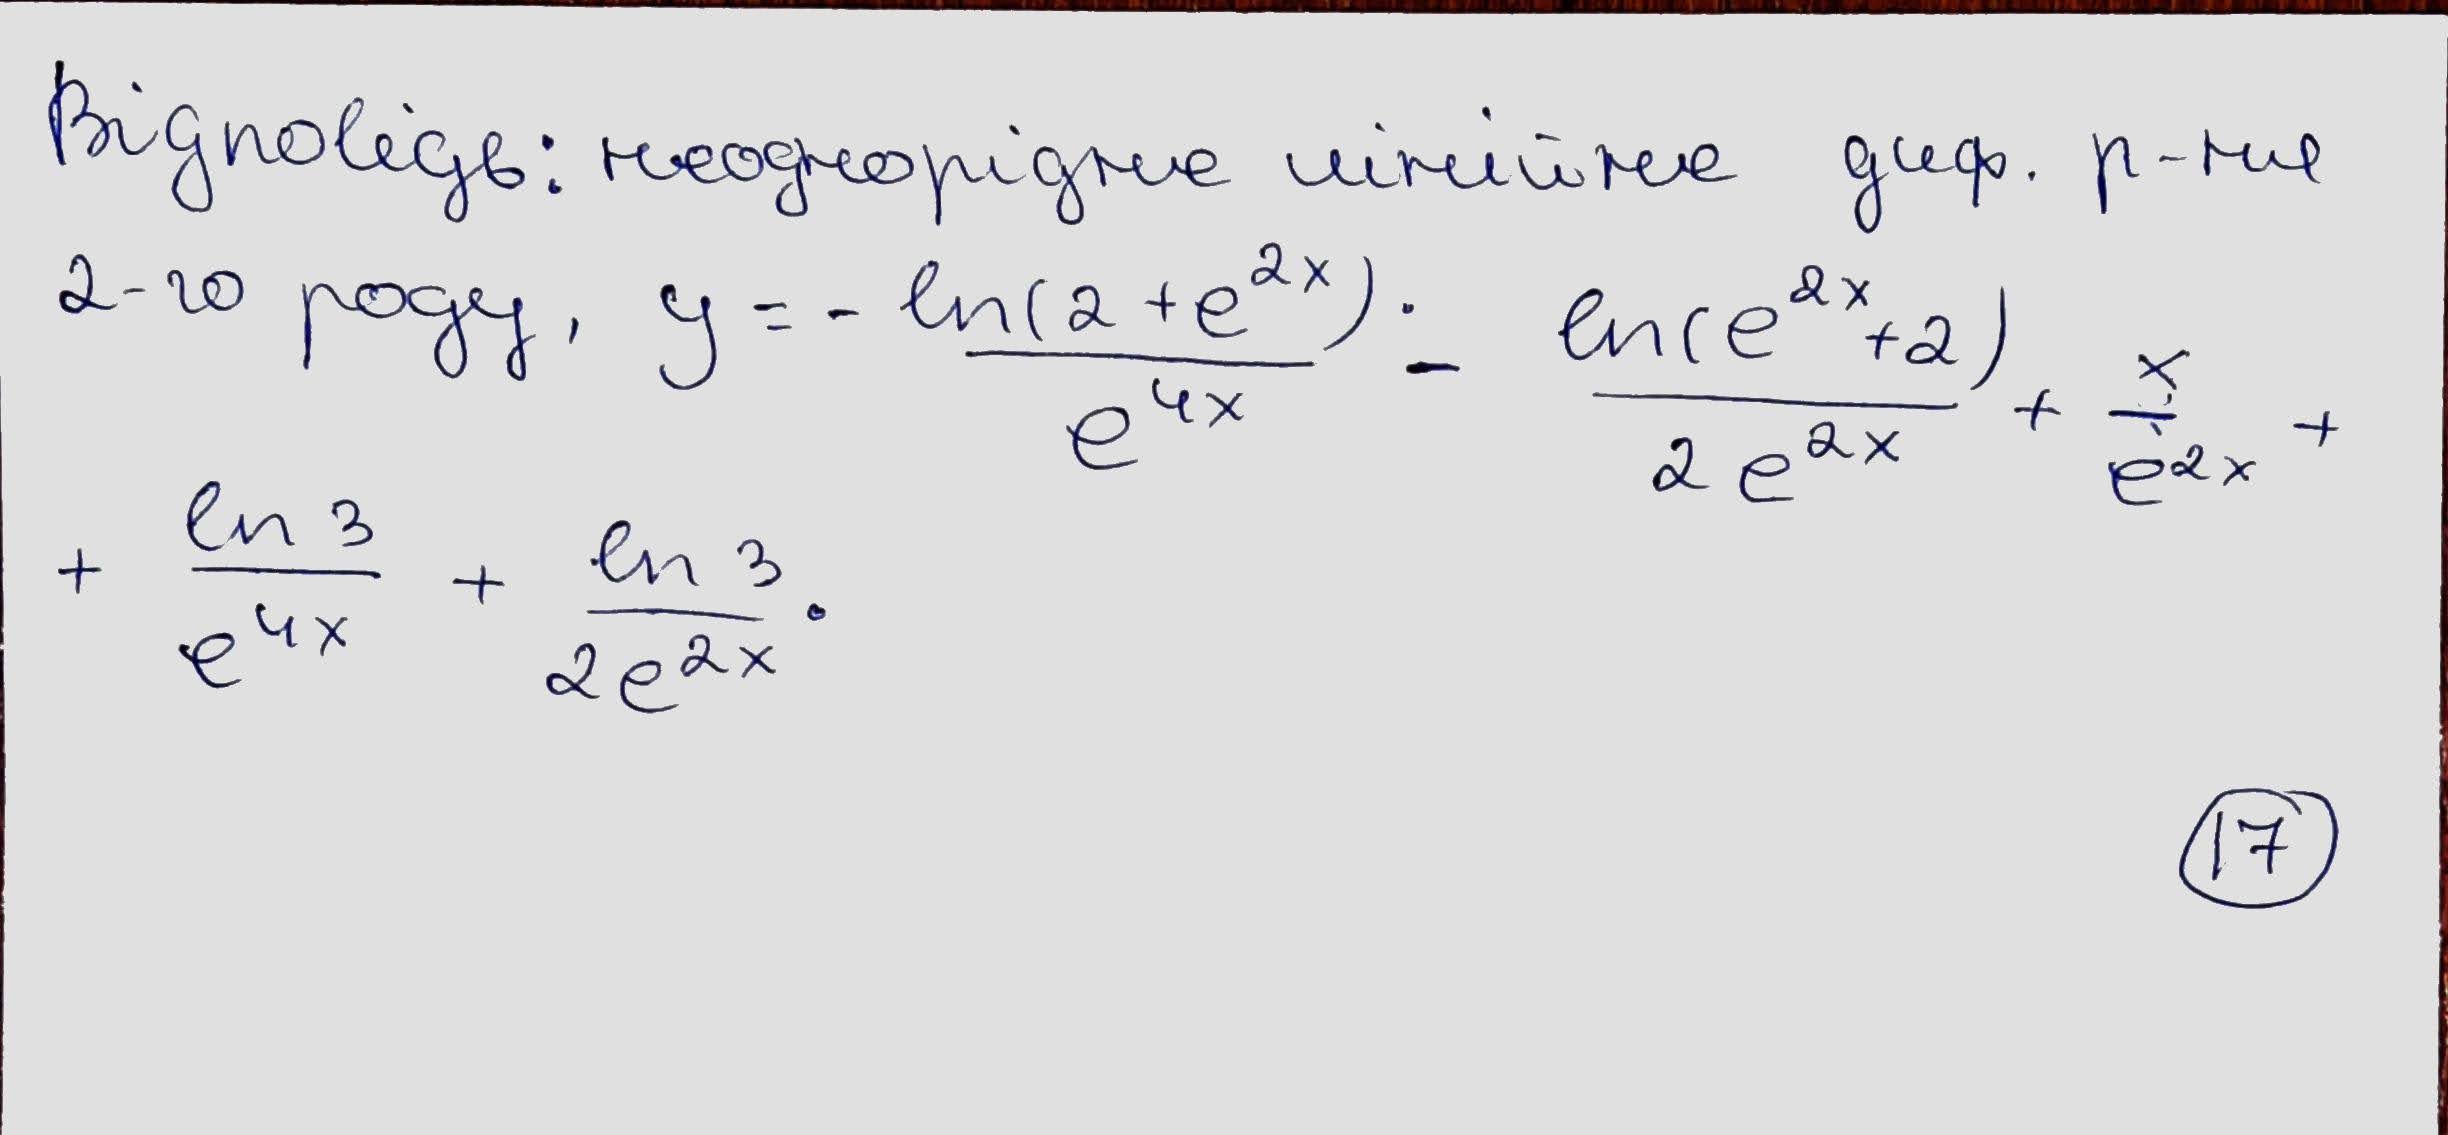 Відповідь: неоднорідне лінійне диф. р-ня
2-го роду, y = - ln(2 + e^{2x}) / e^{4x} - ln(e^{2x} + 2) / 2e^{2x} + x / e^{2x} +
+ ln 3 / e^{4x} + ln 3 / 2e^{2x}.
17